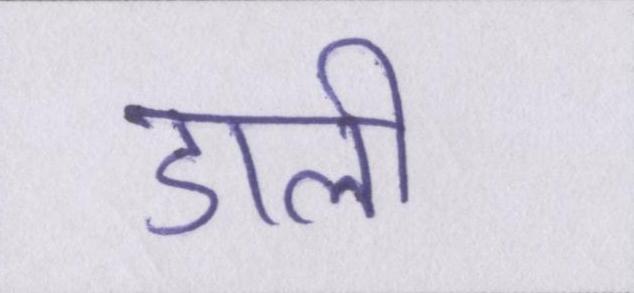 डाली